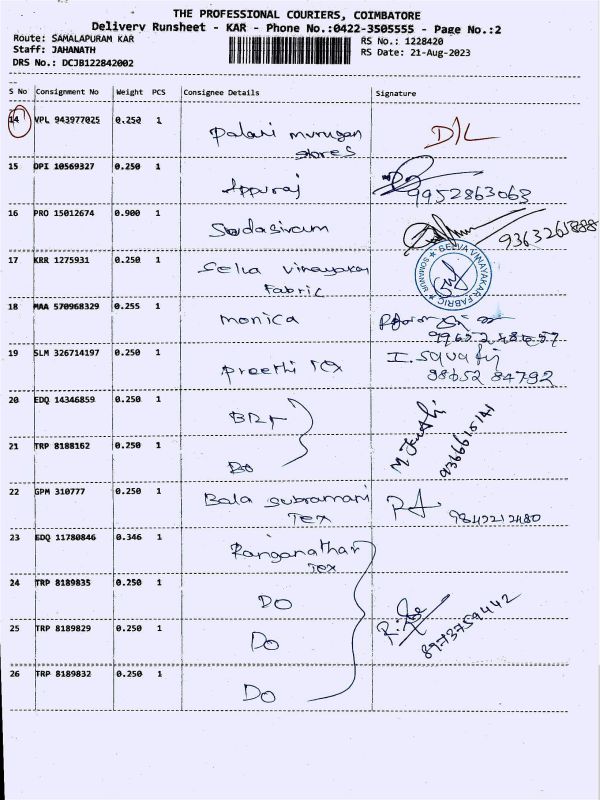 THE PROFESSIONAL COURIERS, COIMBATORE
Delivery Runsheet - KAR - Phone No.:0422-3505555 - Page No.:2
Route: SAMALAPURAM KAR
RS No.: 1228420
Staff: JAHANATH
RS Date: 21-Aug-2023
DRS No.: DCJB122842002
S No Consignment No Weight PCS Consignee Details Signature
14 VPL 943977025 0.250 1 Palani murugan stores D/L
15 OPI 10569327 0.250 1 Appuraj 9952863063
16 PRO 15012674 0.900 1 Sadasivam
17 KRR 1275931 0.250 1 Selva vinayakar Fabric
SELVA VINAYAKAR FABRIC
18 MAA 570968329 0.255 1 monica
19 SLM 326714197 0.250 1 preethi Tex 98652 84792
20 EDQ 14346859 0.250 1
21 TRP 8188162 0.250 1 Do
22 GPM 310777 0.250 1 Bala subramani Tex 9842212480
23 EDQ 11780846 0.346 1 Ranganathar Tex
24 TRP 8189835 0.250 1 DO
25 TRP 8189829 0.250 1 Do 8973759442
26 TRP 8189832 0.250 1 Do